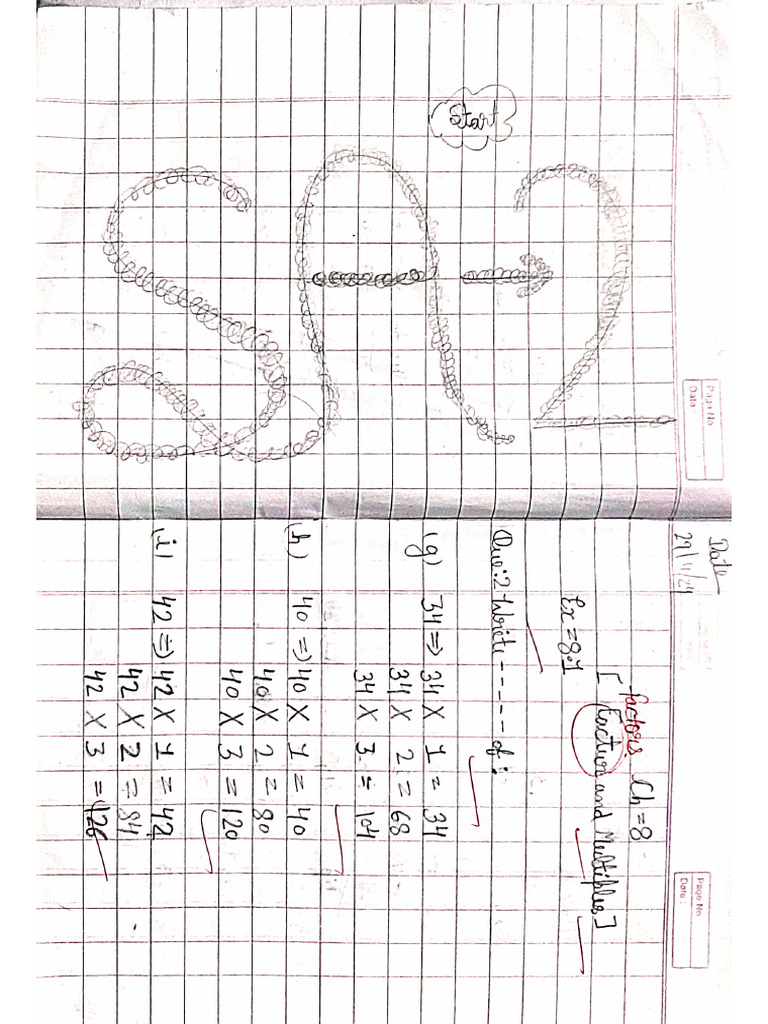 Page No.
Date :
Start
SA-2
Page No.
Date :
Date
29/11/24
Ch = 8
factors
[Faction and Multiples]
Ex = 8.1
Que:2 Write-----of:
(g) 34 => 34 X 1 = 34
34 X 2 = 68
34 X 3 = 104
(h) 40 => 40 X 1 = 40
40 X 2 = 80
40 X 3 = 120
(i) 42 => 42 X 1 = 42
42 X 2 = 84
42 X 3 = 126